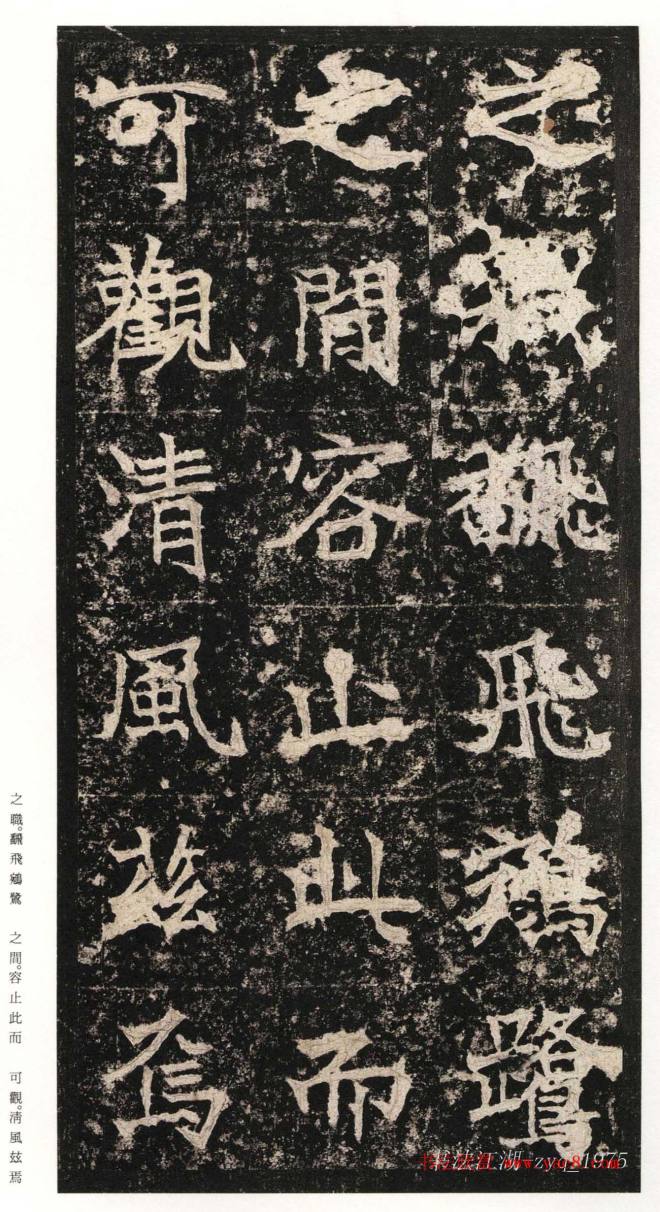 之職飜飛鵷鷺
之間容止此而
可觀清風茲焉
之職。飜飛鵷鷺 之間。容止此而 可觀。清風茲焉
zyq_1975